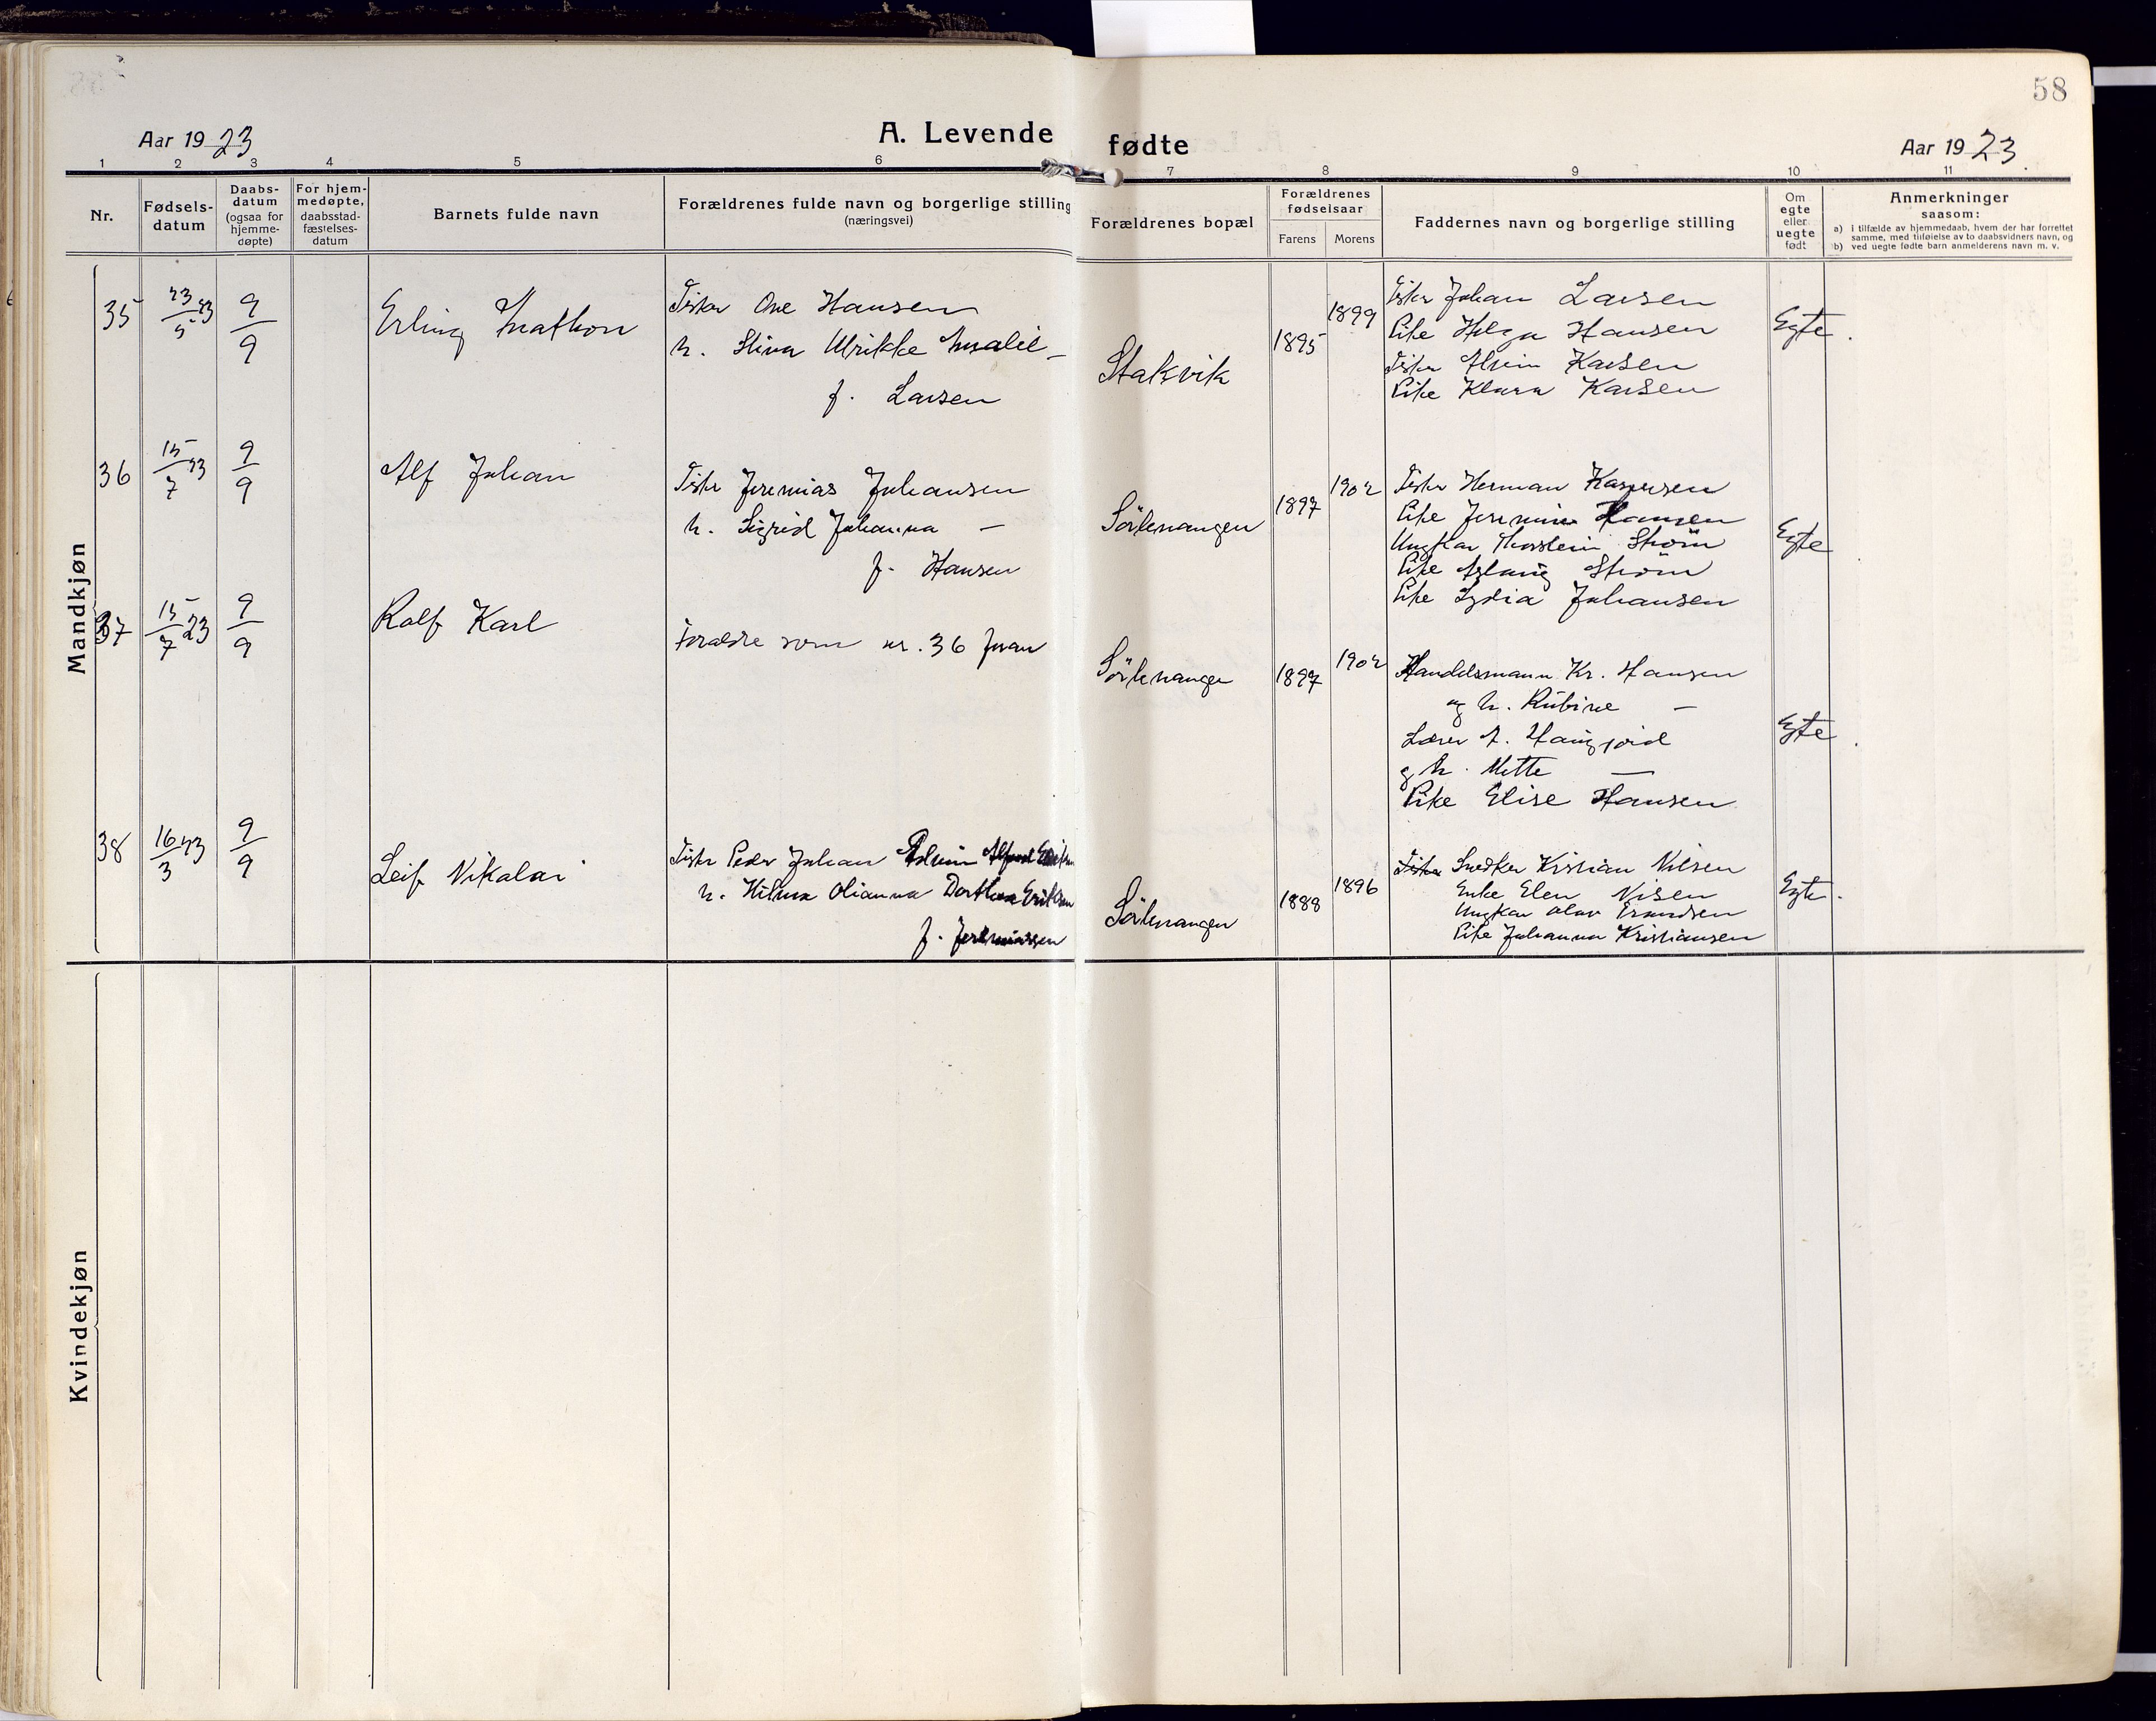 58
Aar 1923
A. Levende fødte
Aar 1923
1 2 3 4 5 6 7 8 9 10 11
Nr.
Fødsels-
datum
Daabs-
datum
(ogsaa for
hjemme-
døpte)
For hjem-
medøpte,
daabsstad-
fæstelses-
datum
Barnets fulde navn
Forældrenes fulde navn og borgerlige stilling
(næringsvei)
Forældrenes bopæl
Forældrenes
fødselsaar
Farens Morens
Faddernes navn og borgerlige stilling
Om
egte
eller
uegte
født
Anmerkninger
saasom:
a) i tilfælde av hjemmedaab, hvem der har forrettet
samme, med tilføielse av to daabsvidners navn, og
b) ved uegte fødte barn anmelderens navn m. v.
Mandkjøn
35 23/5 23 9/9 Erling
Fisker Ove Hansen
h. Stina Ulrikke —
f. Larsen
Stakvik
1895 1899
Fisker Johan Larsen
Pike Helga Hansen
Fisker Karlsen
Pike Klara Karlsen
Egte.
36 15/7 23 9/9 Alf Johan
Fisker Jeremias Johansen
h. Sigrid Johanna —
f. Hansen
Sörlenangen
1897 1902
Fisker Herman Kaspersen
Pike Jeremine Hansen
Ungkar Thorstein Ström
Pike Aslaug Ström
Pike Lydia Johansen
Egte
37 15/7 23 9/9 Rolf Karl
Foraldre som nr. 36 foran
Sörlenangen
1897 1902
Handelsmann Kr. Hansen
og h. Rubine —
Lærer A.
og h. Mette —
Pike Elise Hansen
Egte.
38 16/3 23 9/9 Leif Nikolai
Fisker Peder Johan Edvin Alfred Eriksen
h. Hilma Olianna Dorthea Eriksen
f. Jeremiassen
Sörlenangen
1888 1896
Fisker Snedker Kristian Nilsen
Enke Elen Nilsen
Ungkar Olav
Pike Johanna Kristiansen
Egte.
Kvindekjøn